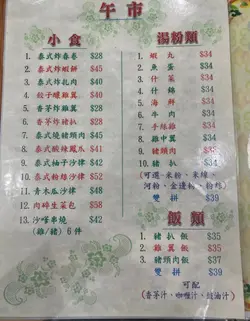 午市
小食
1. 泰式炸春卷 $28
2. 泰式炸蝦餅 $45
3. 泰式炸扎肉 $40
4. 骰子曜雞翼 $40
5. 香茅炸豬扒 $40
7. 泰式燒豬頸肉 $50
8. 泰式酸辣鳳爪 $42
9. 泰式柚子沙律 $42
10. 泰式粉絲沙律 $52
11. 青木瓜沙律 $58
12. 肉碎生菜包 $58
13. 沙嗲串燒 $42
(雞/豬) 6 件
湯粉類
1. 蝦丸 $34
2. 魚蛋 $34
3. 什菜 $34
4. 什錦 $34
5. 海鮮 $34
6. 牛肉 $34
7. 手絲雞 $34
8. 雞中翼 $34
9. 豬頸肉 $35
10. 豬扒 $34
(可選:米粉、米線、
河粉、金邊粉、粉絲)
雙拼 $39
飯類
1. 豬扒飯 $35
2. 雞翼飯 $35
3. 豬頸肉飯 $35
雙拼 $39
可配
(香茅汁、咖喱汁、豉油汁)